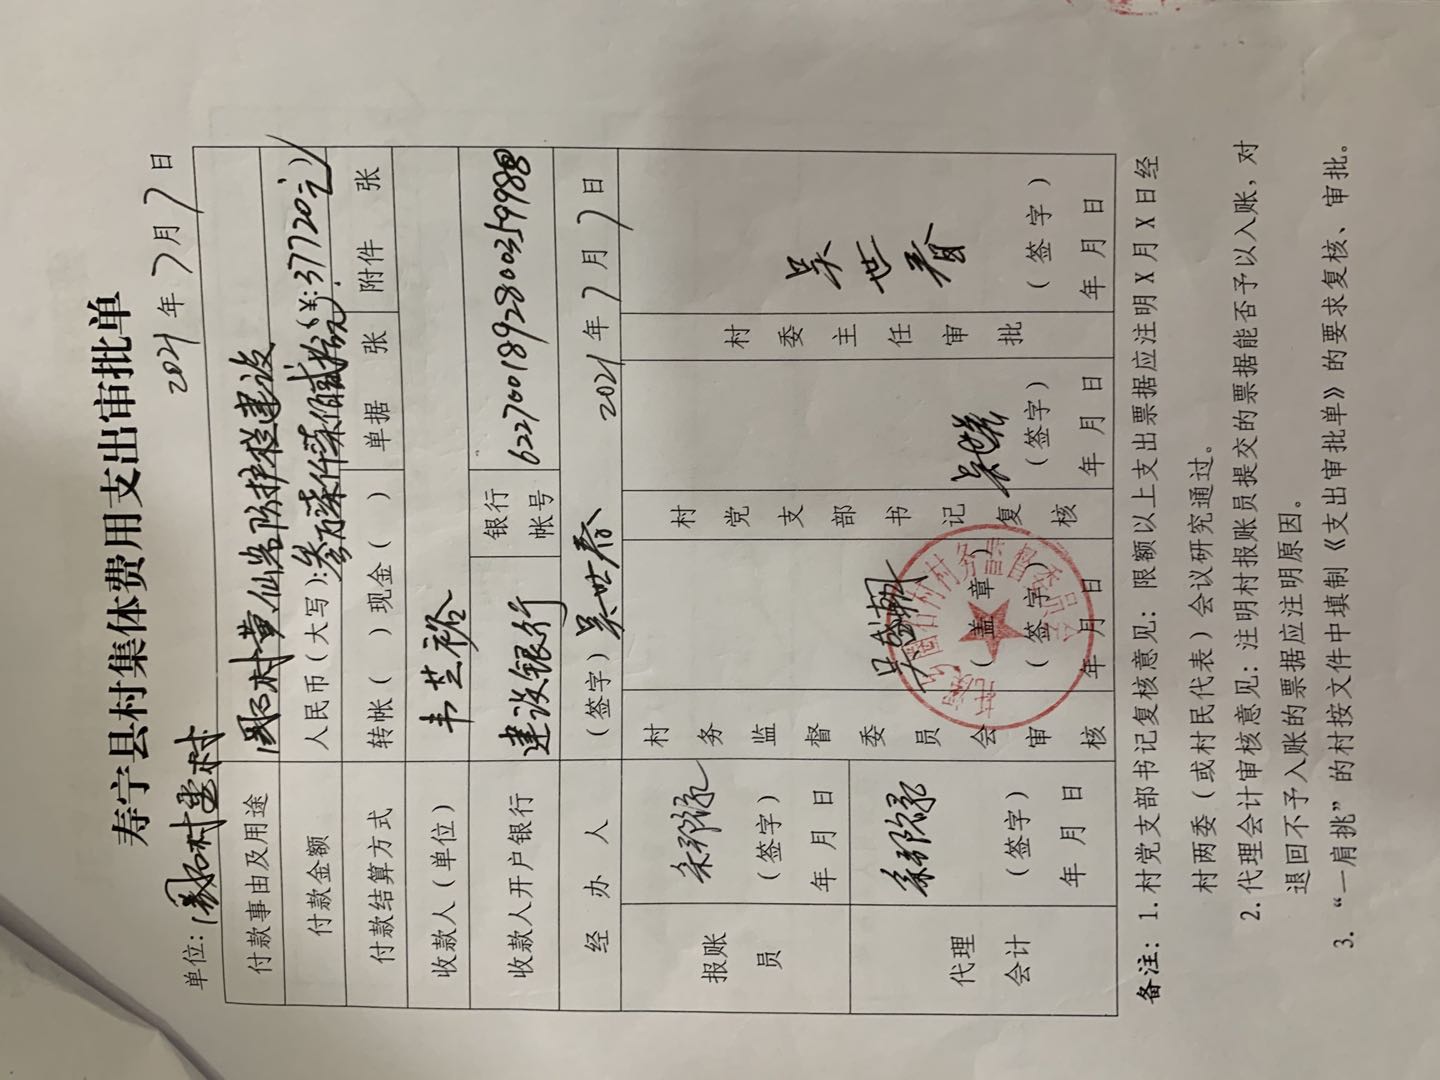 寿宁县村集体费用支出审批单
单位: 村委村 2021 年 7 月 7 日
付款事由及用途 村黄仙岩防护栏建设
付款金额 人民币(大写): 叁万柒仟柒佰贰拾元 (¥:37720元)
付款结算方式 转帐( ) 现金( ) 单据 张 附件 张
收款人(单位) 韦芝裕
收款人开户银行 建设银行 银行帐号 6227001892800359988
经办人 (签字) 吴世春 2021 年 7 月 7 日
报账员 (签字) 年 月 日
代理会计 (签字) 年 月 日
村务监督委员会审核 (盖章) (签字) 年 月 日
村党支部书记复核 (签字) 年 月 日
村委主任审批 吴世春 (签字) 年 月 日
村务监督委员会
备注: 1.村党支部书记复核意见: 限额以上支出票据应注明X月X日经
村两委(或村民代表)会议研究通过。
2.代理会计审核意见: 注明村报账员提交的票据能否予以入账, 对
退回不予入账的票据应注明原因。
3. “一肩挑”的村按文件中填制《支出审批单》的要求复核、审批。